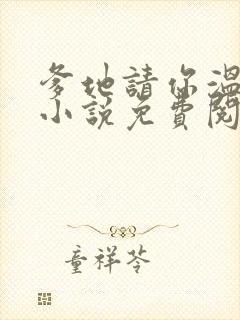 爹地請你溫
小說免費閱
童祥苓